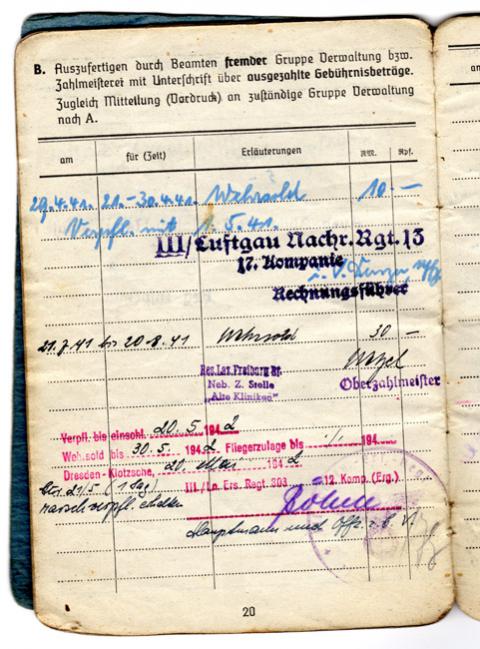 B. Auszufertigen durch Beamten fremder Gruppe Verwaltung bzw.
Zahlmeisterei mit Unterschrift über ausgezahlte Gebührnisbeträge.
Zugleich Mitteilung (Vordruck) an zuständige Gruppe Verwaltung
nach A.
am für (Zeit) Erläuterungen RM. Rpf.
29.4.41. 21.-30.4.41. Wehrsold 10 —
Verpfl. mit 1.5.41.
III/Luftgau Nachr. Rgt. 13
17. Kompanie
Rechnungsführer
21.7.41 bis 20.8.41 Wehrsold 30 —
Res. Laz. Freiburg Br.
Neb. Z. Stelle
„Alte Kliniken"
Oberzahlmeister
Verpfl. bis einschl. 20.5. 1942
Weh.sold bis 30.5. 1942 Fliegerzulage bis ./. 194
Dresden-Klotzsche, 20. Mai 1942
III/Ln. Ers. Regt. 303 12. Komp. (Erg.)
für 21/5 (1 Tag)
Marschverpfl. erhalten
Böhme
Hauptmann und Offz. z. b. V.
20
an